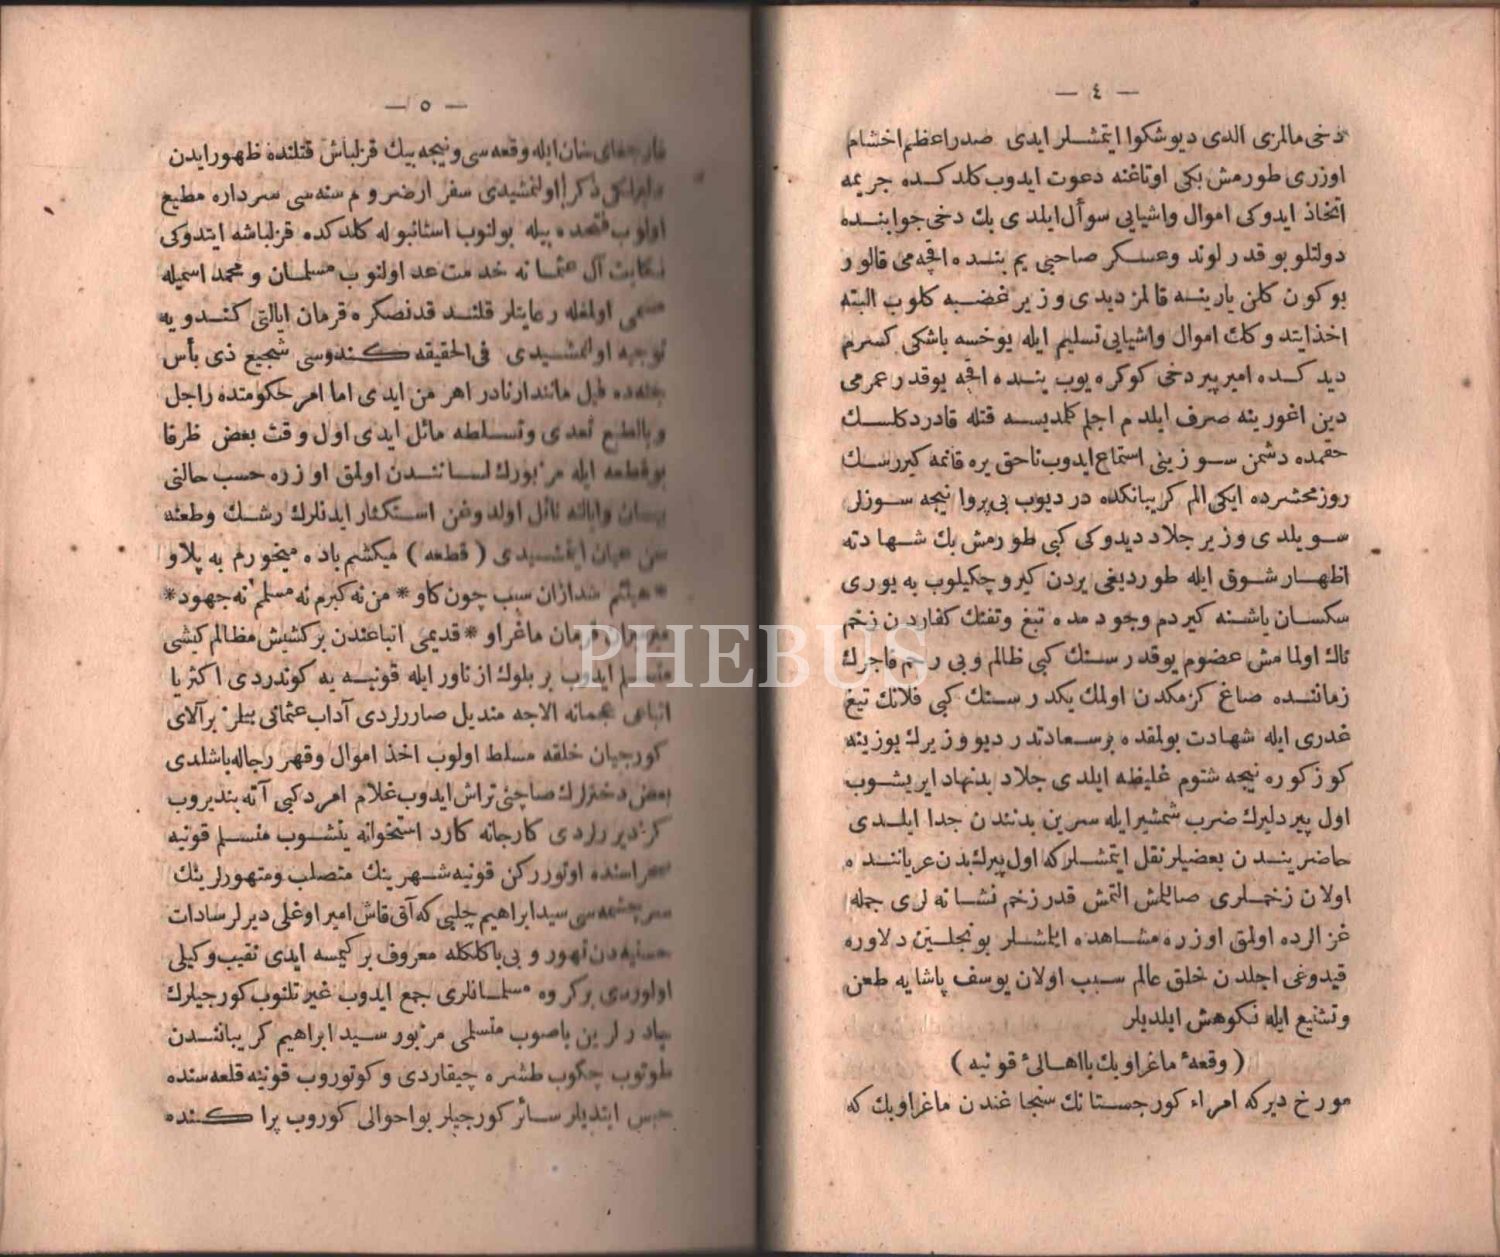 — ٤ —
دخی مالمزی الدی دیوشکوا ایتمشلر ایدی صدراعظم اخشام
اوزری طورمش بکی اوتاغنه دعوت ایدوب کلدکده جریمه
اتخاذ ایدوکی اموال واشیایی سوأل ایلدی بك دخی جوابنده
دولتلو بوقدر لوند وعسکر صاحبی یم بنده اقچه می قالور
بوکون کلن یارینه قالمز دیدی وزیر غضبه کلوب البته
اخذ ایتدوکك اموال واشیایی تسلیم ایله یوخسه باشکی کسرم
دیدکده امیر پیر دخی کوکره یوب بنده اقچه یوقدر عمرمی
دین اغورینه صرف ایلدم اجلم کلمدیسه قتله قادر دکلسك
حقمده دشمن سوزینی استماع ایدوب ناحق یره قانمه کیررسك
روز محشرده ایکی الم کریبانکده در دیوب بی پروا نیجه سوزلر
سویلدی وزیر جلاد دیدوکی کبی طورمش بك شهادته
اظهار شوق ایله طوردیغی یردن کیرو چکیلوب یه یوری
سکسان یاشنه کیردم وجودمده تیغ وتفنك کفاردن زخم
ناك اولمامش عضوم یوقدر سنك کبی ظالم وبی رحم فاجرك
زماننده صاغ کزمکدن اولمك یکدر سنك کبی فلانك تیغ
غدری ایله شهادت بولمقده بر سعادتدر دیو وزیرك یوزینه
کوزکوره نیجه شتوم غلیظه ایلدی جلاد بدنهاد ایریشوب
اول پیر دلیرك ضرب شمشیر ایله سرین بدنندن جدا ایلدی
حاضریندن بعضیلر نقل ایتمشلر که اول پیرك بدن عریاننده
اولان زخملری صایلمش التمش قدر زخم نشانه لری جمله
غزالرده اولمق اوزره مشاهده ایلمشلر بونجلین دلاوره
قیدوغی اجلدن خلق عالم سبب اولان یوسف پاشایه طعن
وتشنیع ایله نکوهش ایلدیلر
( وقعهٔ ماغراوبك با اهالیٔ قونیه )
مورخ دیرکه امراء کورجستانك سنجاغندن ماغراوبك که
— ٥ —
خان ایله وقعه سی ونیجه بیك قزلباش قتلنده ظهور ایدن
ذکر اولنمشیدی سفر ارضروم سنه سی سرداره مطیع
اولوب بیله بولنوب استانبوله کلدکده قزلباشه ایتدوکی
آل عثمانه خدمت عد اولنوب مسلمان و محمد اسمیله
مسمی اولمغله رعایتلر قلند قدنصکره قرمان ایالتی کندویه
توجیه اولنمشیدی فی الحقیقه کندوسی شجیع ذی بأس
فیل مانندار نادر اهر من ایدی اما امر حکومتده راجل
وبالطبع تعدی وتسلطه مائل ایدی اول وقت بعض ظرفا
بوقطعه ایله مزبورك لساننندن اولمق اوزره حسب حالنی
بیان وایالته نائل اولدوغن استکثار ایدنلرك رشك وطعنه
سن عیان ایتمشیدی ( قطعه ) میکشم باده میخورم به پلاو
شدازان سبب چون کاو * من نه کبرم نه مسلم نه جهود *
قرمان ماغراو * قدیمی اتباعندن بر کشیش مظالم کیشی
متسلم ایدوب بر بلوك از ناور ایله قونیه یه کوندردی اکثریا
اتباعی عجمانه الاجه مندیل صاررلردی آداب عثمانی بیلمز بر آلای
کورجیان خلقه مسلط اولوب اخذ اموال وقهر رجاله باشلدی
بعض دخترلرك صاچنی تراش ایدوب غلام امرد کبی آته بندیروب
کزدیررلردی کارجانه کارد استخوانه یتشوب متسلم قونیه
سراسنده اوتوررکن قونیه شهرینك متصلب ومتهورلرینك
سر چشمه سی سید ابراهیم چلبی که آق قاش امیر اوغلی دیرلر سادات
حسنیه دن تهور و بی باکلکله معروف بر کیمسه ایدی نقیب وکیلی
اولوردی بر کروه مسلمانلری جمع ایدوب غیرتلنوب کورجیلرك
چادرلرین باصوب متسلمی مزبور سید ابراهیم کریبانندن
طوتوب چکوب طشره چیقاردی وکوتوروب قونیه قلعه سنده
حبس ایتدیلر سائر کورجیلر بو احوالی کوروب پراکنده
PHEBUS